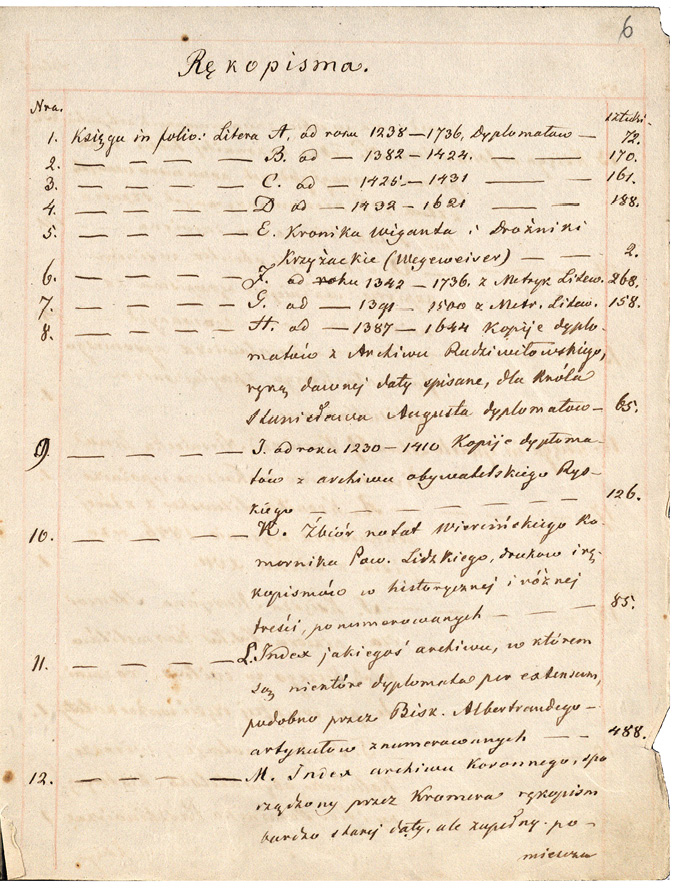 6
Rękopisma.
Nra. sztuki.
1. Księga in folio: Litera A. od roku 1238 — 1736, Dyplomatów — 72.
2. — — — — B. od — 1382 — 1424. — — 170.
3. — — — — C. od — 1425 — 1431 — — 161.
4. — — — — D od — 1432 — 1621 — 188.
5. — — — — E. Kronika Wiganta i Drożniki
Krzyżackie (Wegeweiser) — — 2.
6. — — — — F. od roku 1342 — 1736. z Metryk Litew. 268.
7. — — — — G. od — 1391 — 1500 z Metr. Litew. 158.
8. — — — — H. od — 1387 — 1644 Kopije dyplo-
matów z Archiwu Radziwiłowskiego,
ręką dawnej daty spisane, dla Króla
Stanisława Augusta dyplomatów — 65.
9. — — — — I. od roku 1230 — 1410 Kopije dyploma-
tów z archiwu obywatelskiego Rys-
kiego — — — — — — 126.
10. — — — — K. Zbiór notat Wiercińskiego Ko-
mornika Pow. Lidzkiego, druków i rę-
kopismów w historycznej i różnej
treści, ponumerowanych — — — 85.
11. — — — — L. Index jakiegoś archiwu, w którem
są niektóre dyplomata per extensum,
podobno przez Bisk. Albertrandego —
artykułów znumerowanych — — 488.
12. — — — — M. Index archiwu Koronnego, spo
rządzony przez Kromera rękopism
bardzo starej daty, ale zupełny. po-
mieszcza